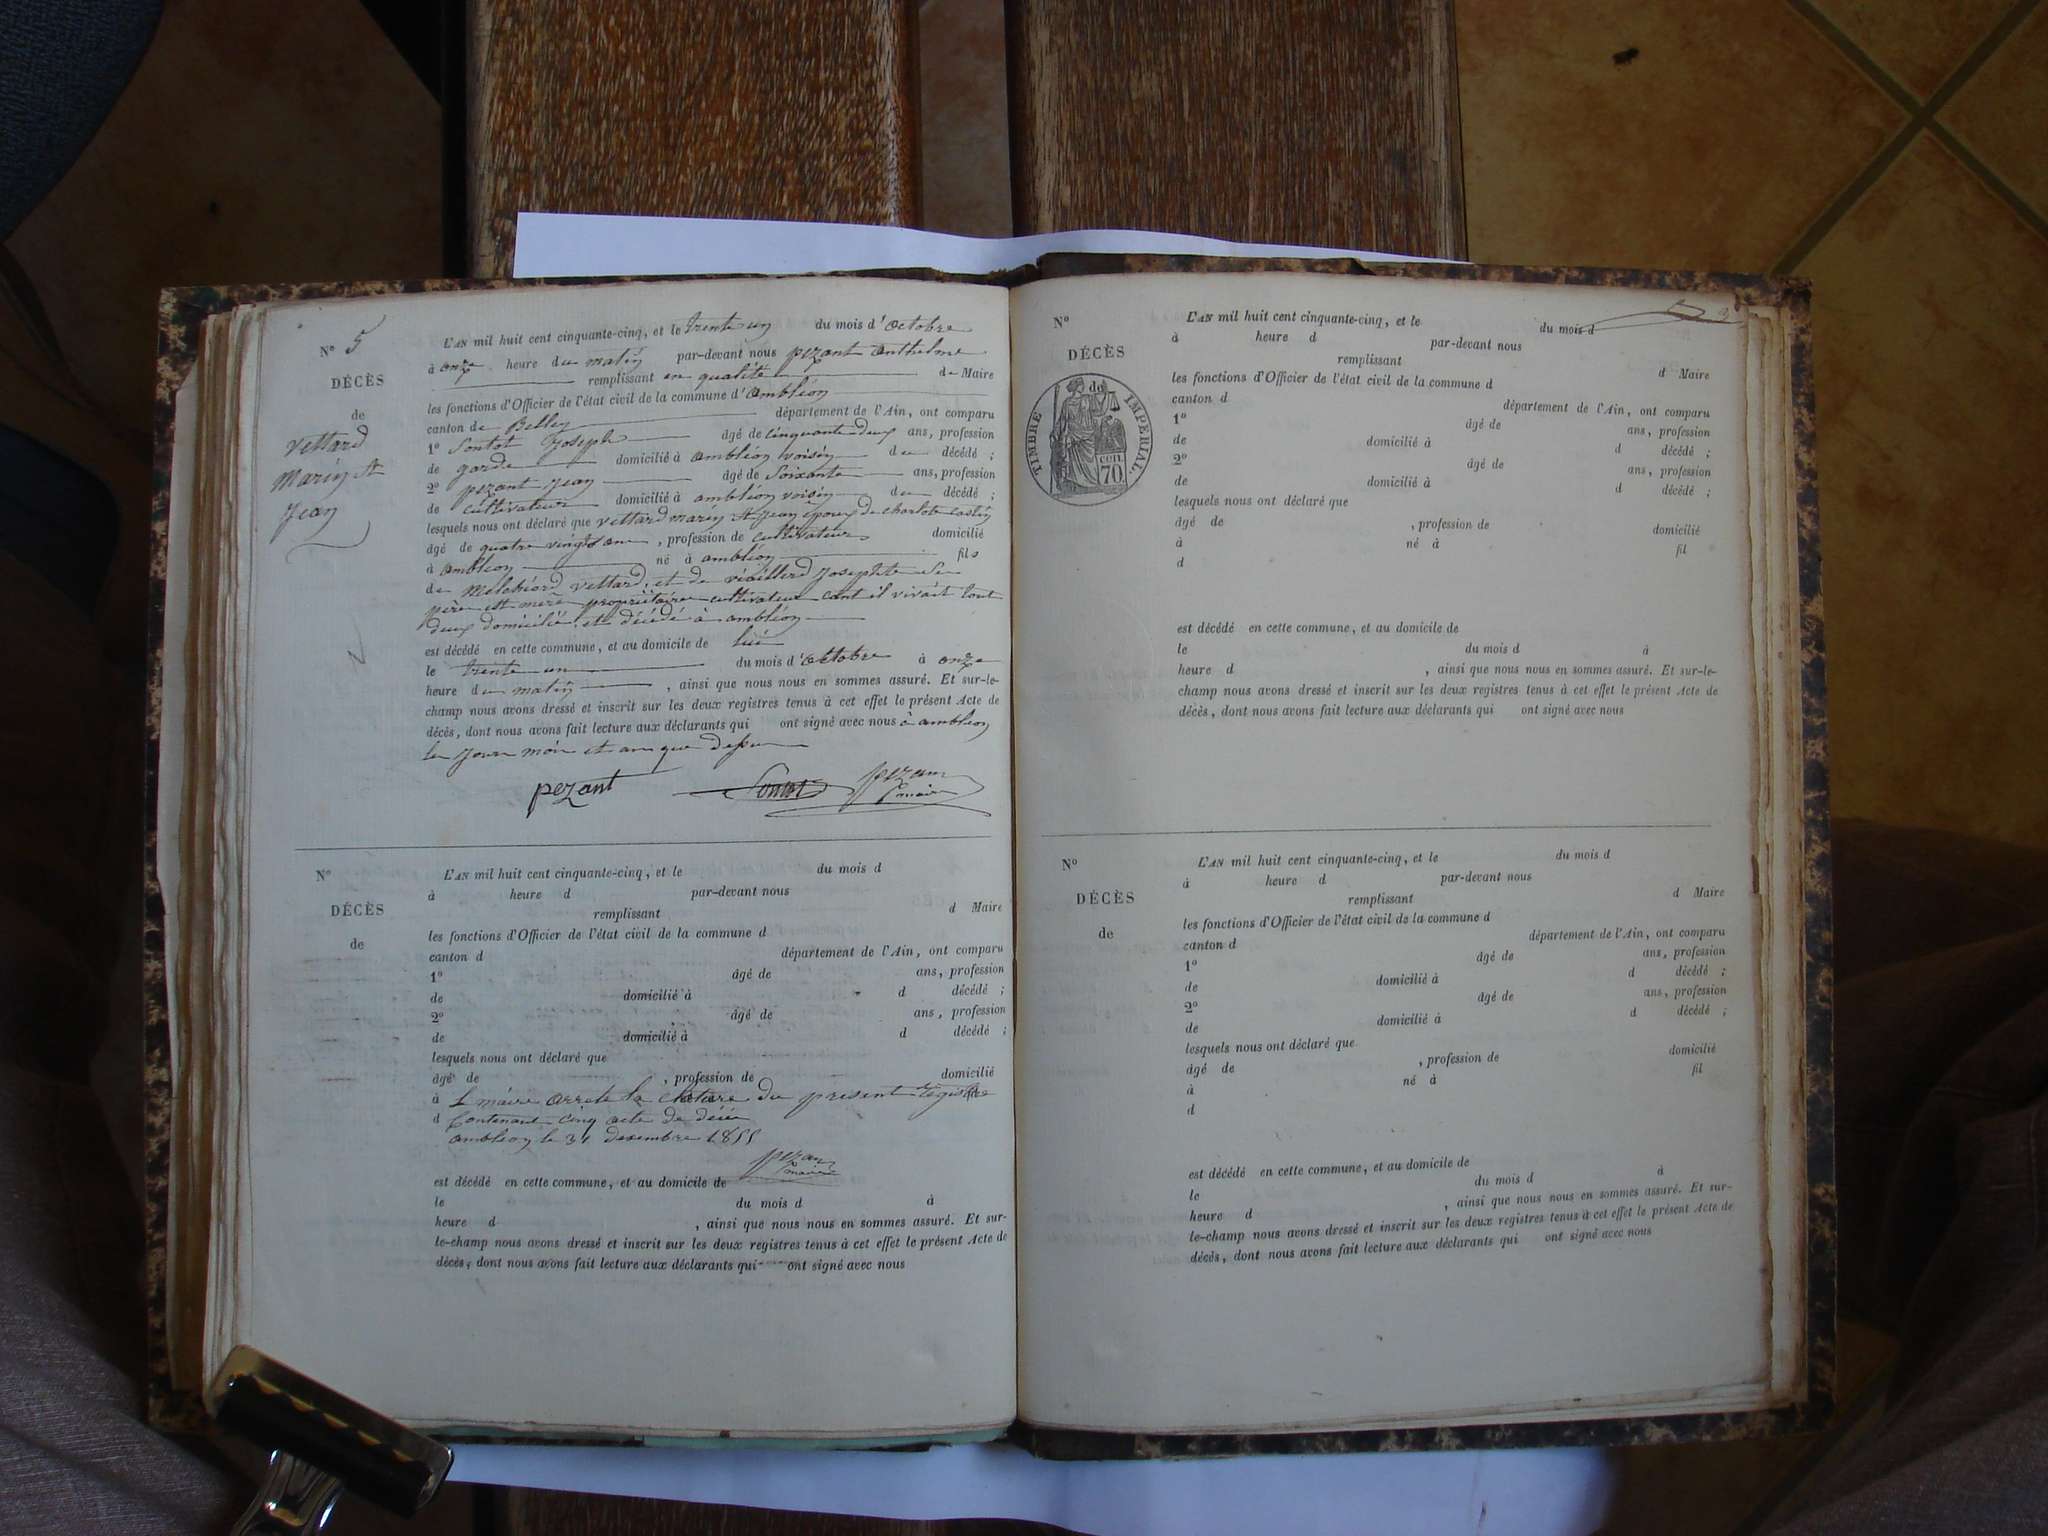 N° 5
DÉCÈS
de
Vettard
Marin et
Jean
L'AN mil huit cent cinquante-cinq, et le trente un du mois d'octobre
à onze heure du matin par-devant nous pezant anthelme
remplissant en qualité de Maire
les fonctions d'Officier de l'état civil de la commune d'ambléon
canton de Belley département de l'Ain, ont comparu
1° Sontot Joseph âgé de cinquante-deux ans, profession
de garde domicilié à ambléon voisin du décédé ;
2° pezant jean âgé de soixante ans, profession
de cultivateur domicilié à ambléon voisin du décédé ;
lesquels nous ont déclaré que vettard marin et jean époux de charlote
âgé de quatre vingts ans, profession de cultivateur domicilié
à ambléon né à ambléon fils
de vettard, et de Josephte
père et mère propriétaire cultivateur il vivait tout
deux domicilié et décédé à ambléon
est décédé en cette commune, et au domicile de lui
le trente un du mois d'octobre à onze
heure du matin , ainsi que nous nous en sommes assuré. Et sur-le-
champ nous avons dressé et inscrit sur les deux registres tenus à cet effet le présent Acte de
décès, dont nous avons fait lecture aux déclarants qui ont signé avec nous à ambléon
les jour mois et an que dessu
pezant Sontot pezan
maire
N°
DÉCÈS
de
L'AN mil huit cent cinquante-cinq, et le du mois d
à heure d par-devant nous
remplissant d Maire
les fonctions d'Officier de l'état civil de la commune d
canton d département de l'Ain, ont comparu
1° âgé de ans, profession
de domicilié à d décédé ;
2° âgé de ans, profession
de domicilié à d décédé ;
lesquels nous ont déclaré que
âgé de , profession de domicilié
à L maire arrete la cloture du present registre
d Contenant cinq acte de décé
ambléon le 31 desembre 1855
pezan
maire
est décédé en cette commune, et au domicile de
le du mois d à
heure d , ainsi que nous nous en sommes assuré. Et sur-
le-champ nous avons dressé et inscrit sur les deux registres tenus à cet effet le présent Acte de
décès, dont nous avons fait lecture aux déclarants qui ont signé avec nous
N°
DÉCÈS
TIMBRE IMPERIAL.
de
cen.
70.
L'AN mil huit cent cinquante-cinq, et le du mois d
à heure d par-devant nous
remplissant d Maire
les fonctions d'Officier de l'état civil de la commune d
canton d département de l'Ain, ont comparu
1° âgé de ans, profession
de domicilié à d décédé ;
2° âgé de ans, profession
de domicilié à d décédé ;
lesquels nous ont déclaré que
âgé de , profession de domicilié
à né à fil
d
est décédé en cette commune, et au domicile de
le du mois d à
heure d , ainsi que nous nous en sommes assuré. Et sur-le-
champ nous avons dressé et inscrit sur les deux registres tenus à cet effet le présent Acte de
décès, dont nous avons fait lecture aux déclarants qui ont signé avec nous
N°
DÉCÈS
de
L'AN mil huit cent cinquante-cinq, et le du mois d
à heure d par-devant nous
remplissant d Maire
les fonctions d'Officier de l'état civil de la commune d
canton d département de l'Ain, ont comparu
1° âgé de ans, profession
de domicilié à d décédé ;
2° âgé de ans, profession
de domicilié à d décédé ;
lesquels nous ont déclaré que
âgé de , profession de domicilié
à né à fil
d
est décédé en cette commune, et au domicile de
le du mois d à
heure d , ainsi que nous nous en sommes assuré. Et sur-
le-champ nous avons dressé et inscrit sur les deux registres tenus à cet effet le présent Acte de
décès, dont nous avons fait lecture aux déclarants qui ont signé avec nous